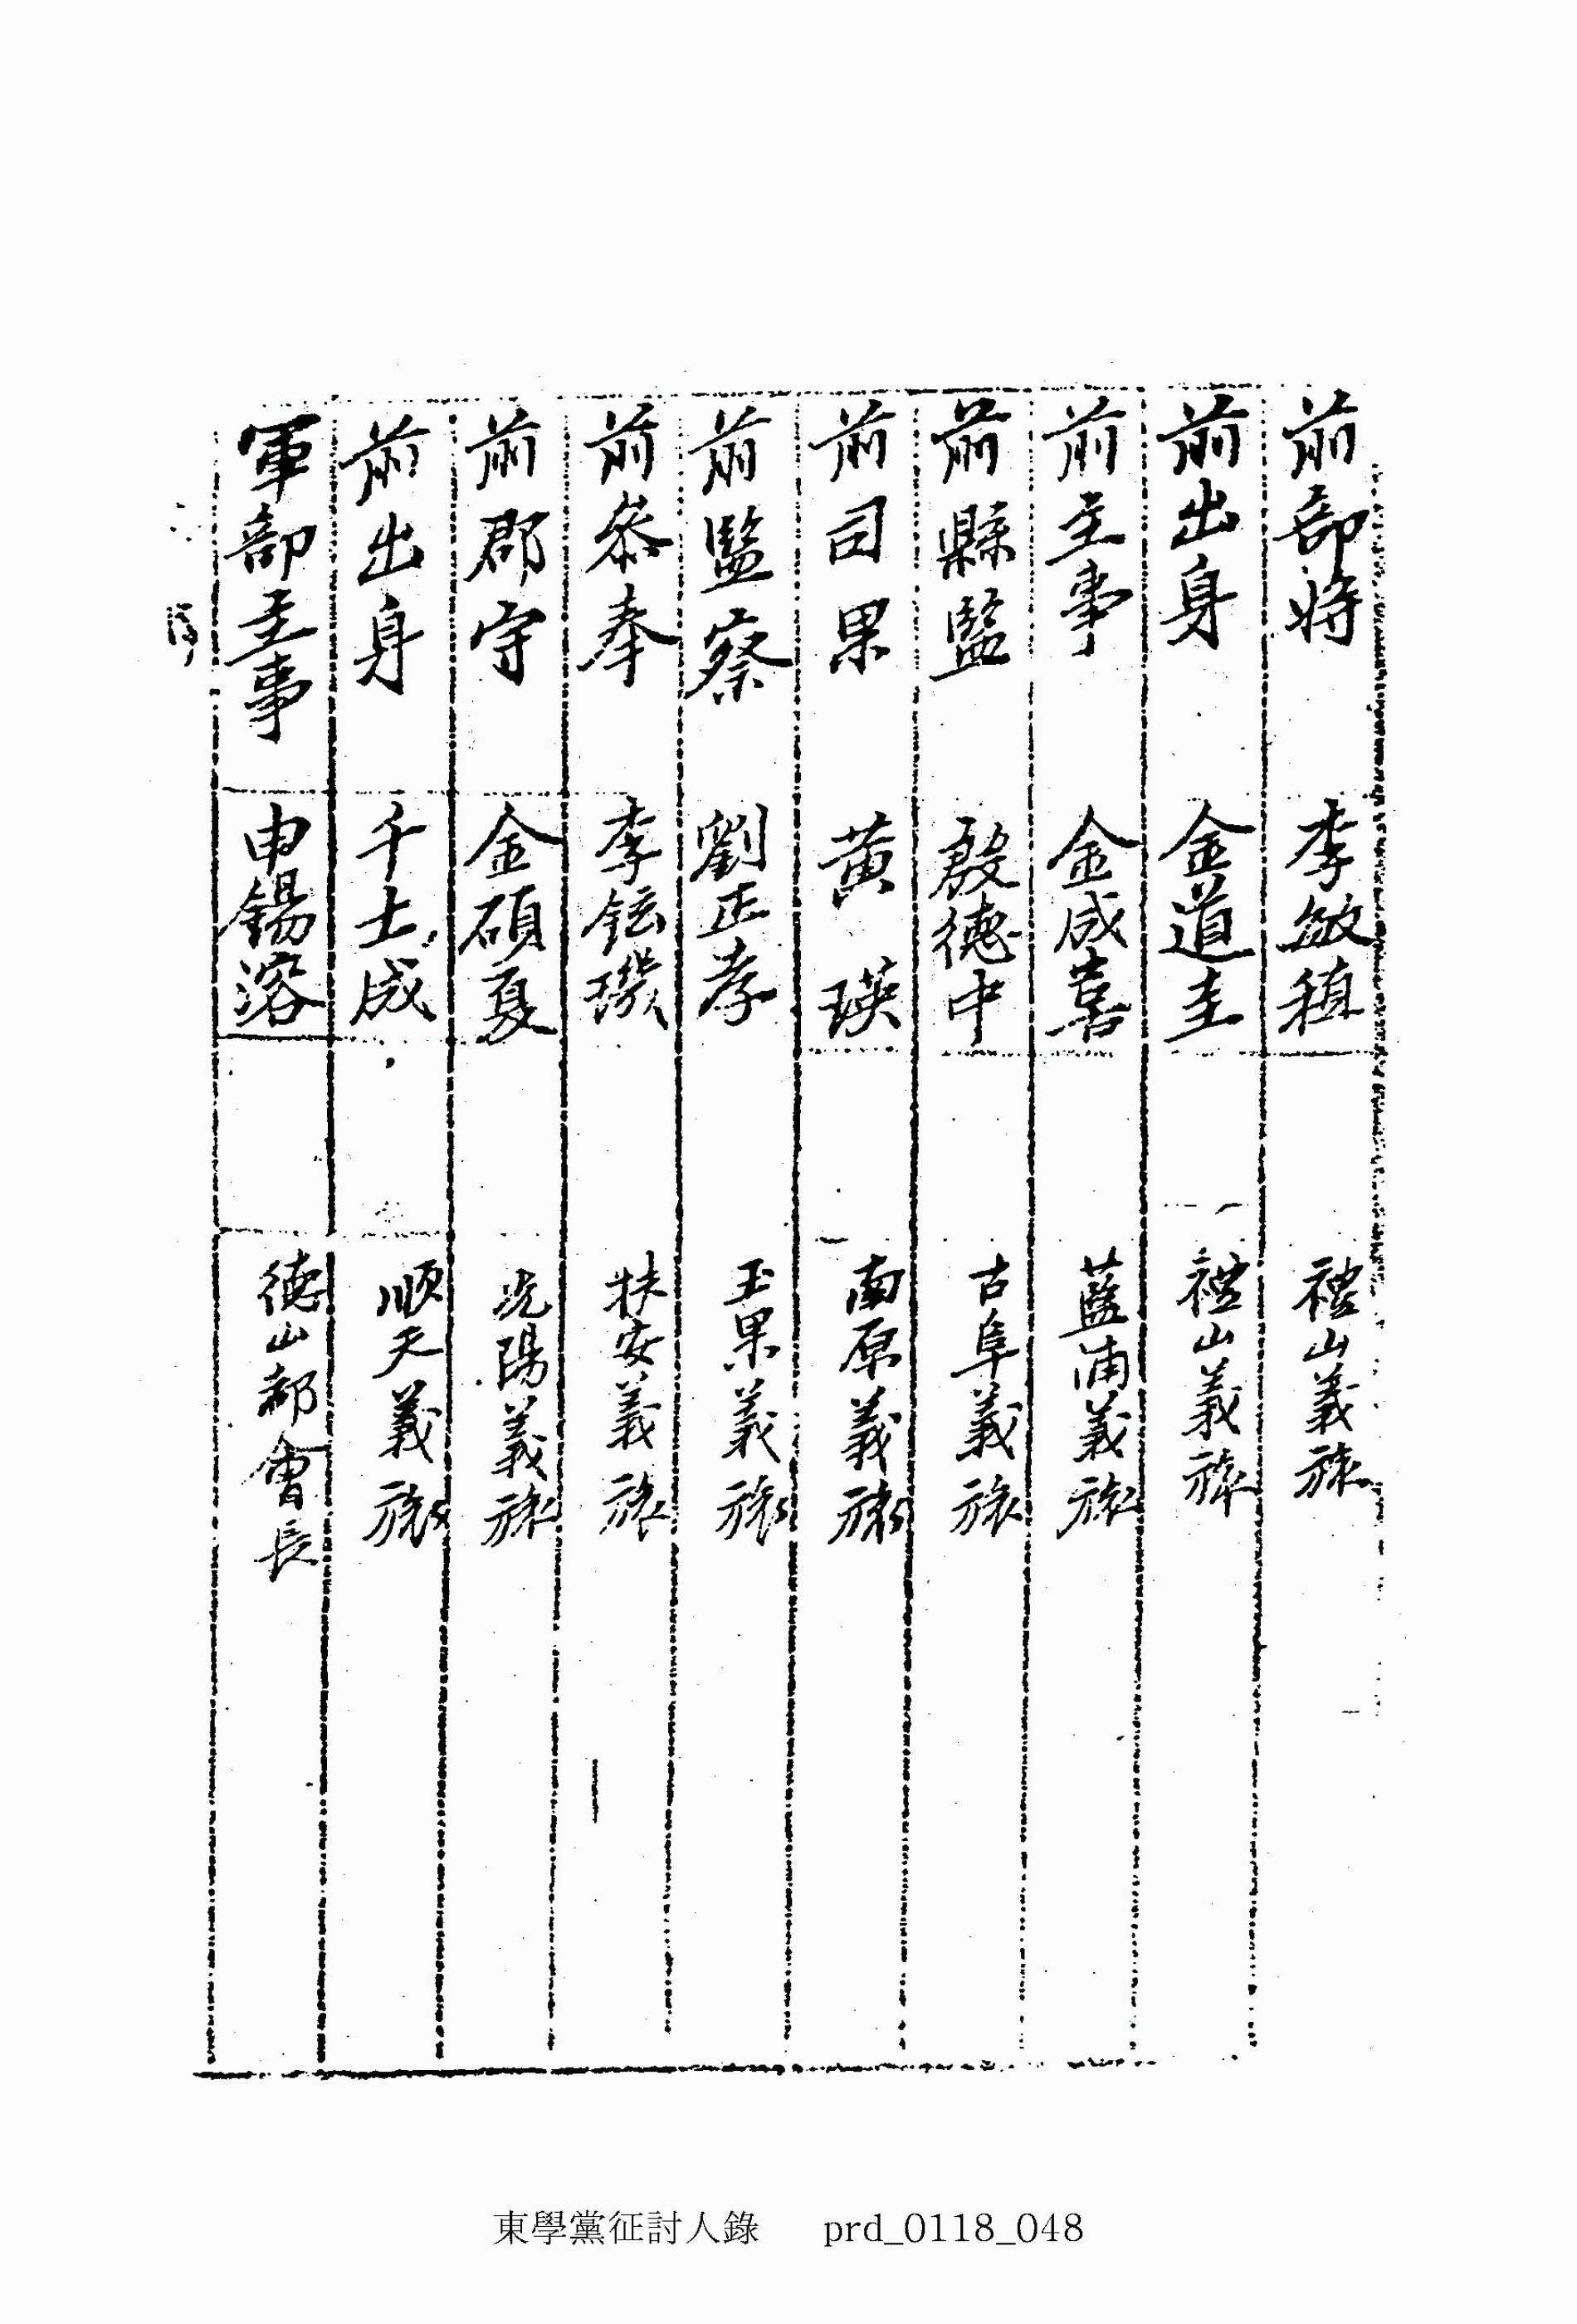 前部將 李敏稙 禮山義旅
前出身 金道圭 禮山義旅
前主事 金成喜 藍浦義旅
前縣監 殷德中 古阜義旅
前司果 黃瑛 南原義旅
前監察 劉正孝 玉果義旅
前參奉 李鉉璣 扶安義旅
前郡守 金碩夏 光陽義旅
前出身 千士成 順天義旅
軍部主事 申錫溶 德山都會長
東學黨征討人錄 prd_0118_048